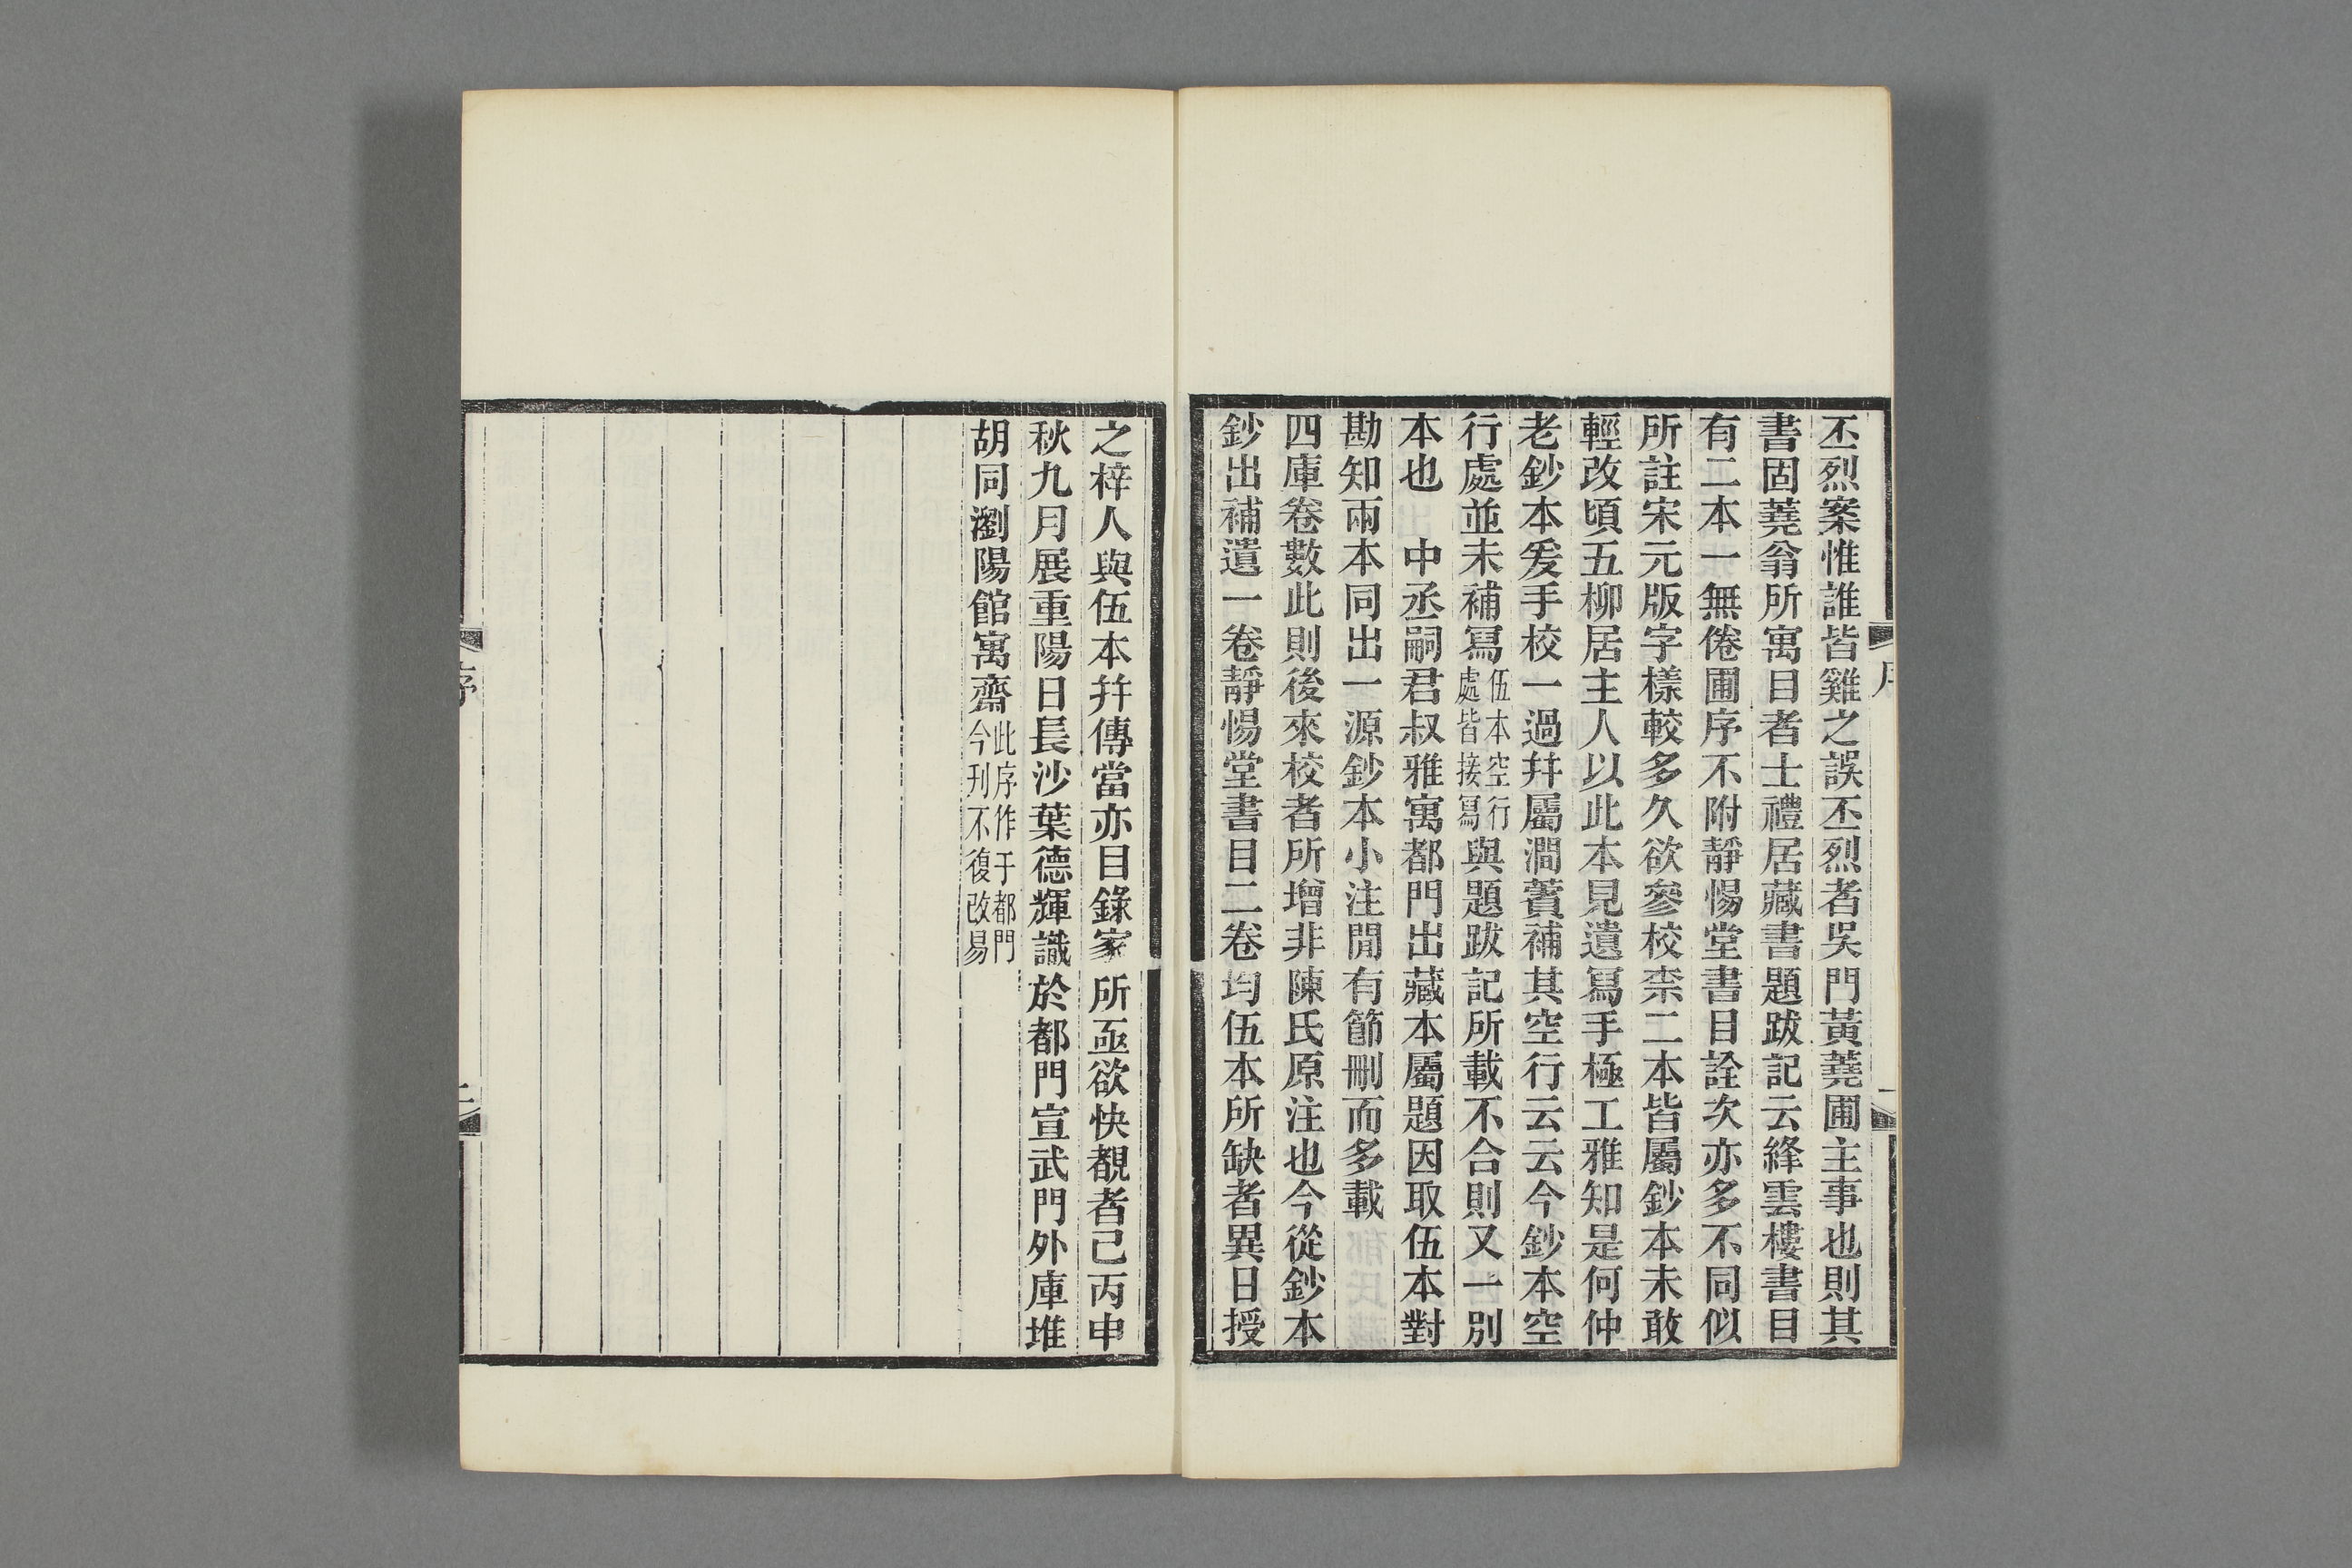 丕烈案惟誰皆雞之誤丕烈者吳門黃蕘圃主事也則其
書固蕘翁所寓目者士禮居藏書題跋記云絳雲樓書目
有二本一無倦圃序不附靜惕堂書目詮次亦多不同似
所註宋元版字樣較多久欲參校柰二本皆屬鈔本未敢
輕改頃五柳居主人以此本見遺寫手極工雅知是何仲
老鈔本爰手校一過幷屬澗薲補其空行云云今鈔本空
行處並未補寫伍本空行處皆接寫與題跋記所載不合則又一別
本也　中丞嗣君叔雅寓都門出藏本屬題因取伍本對
勘知兩本同出一源鈔本小注閒有節刪而多載
四庫卷數此則後來校者所增非陳氏原注也今從鈔本
鈔出補遺一卷靜惕堂書目二卷均伍本所缺者異日授
之梓人與伍本幷傳當亦目錄家所亟欲快覩者已丙申
秋九月展重陽日長沙葉德輝識於都門宣武門外庫堆
胡同瀏陽館寓齋此序作于都門今刊不復改易
序